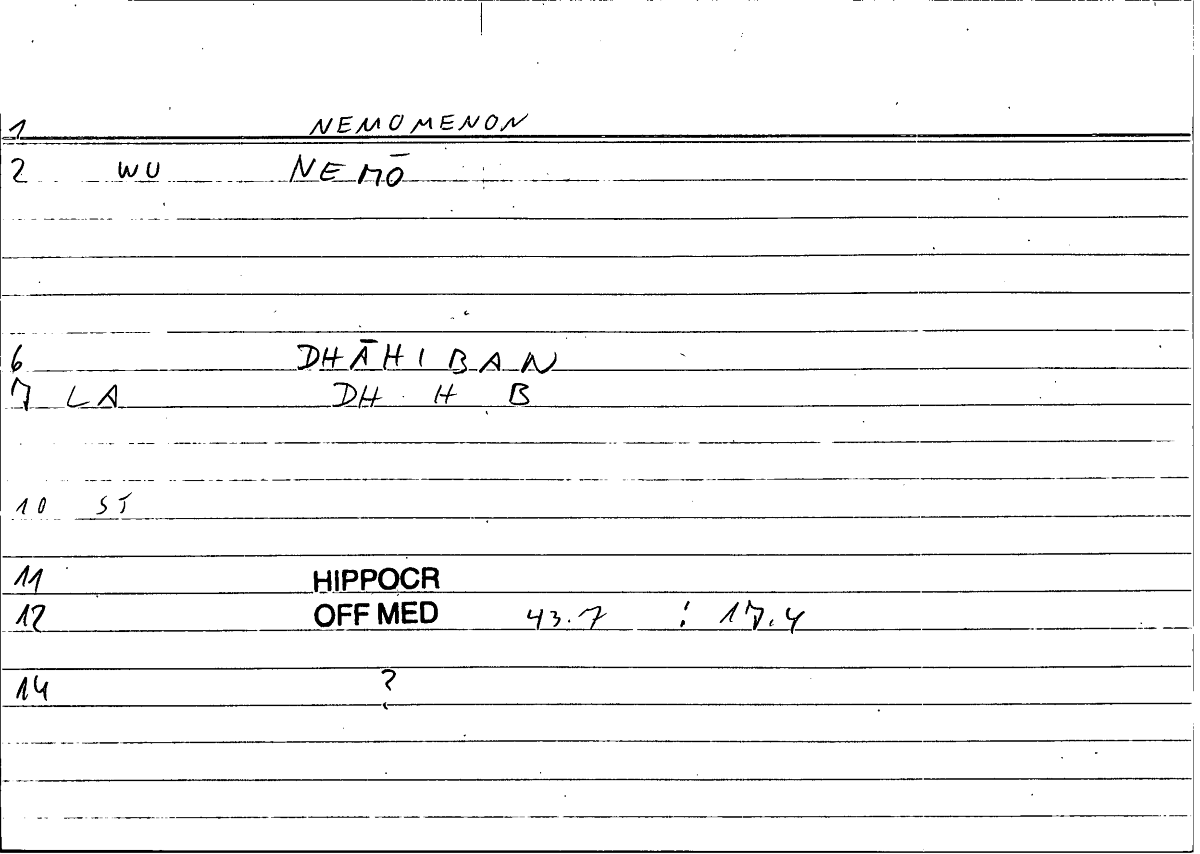 1 NEMOMENON
2 WU NEMŌ
6 DHĀHIBAN
7 LA DH H B
10 ST
11 HIPPOCR
12 OFF MED 43.7 : 17.4
14 ?